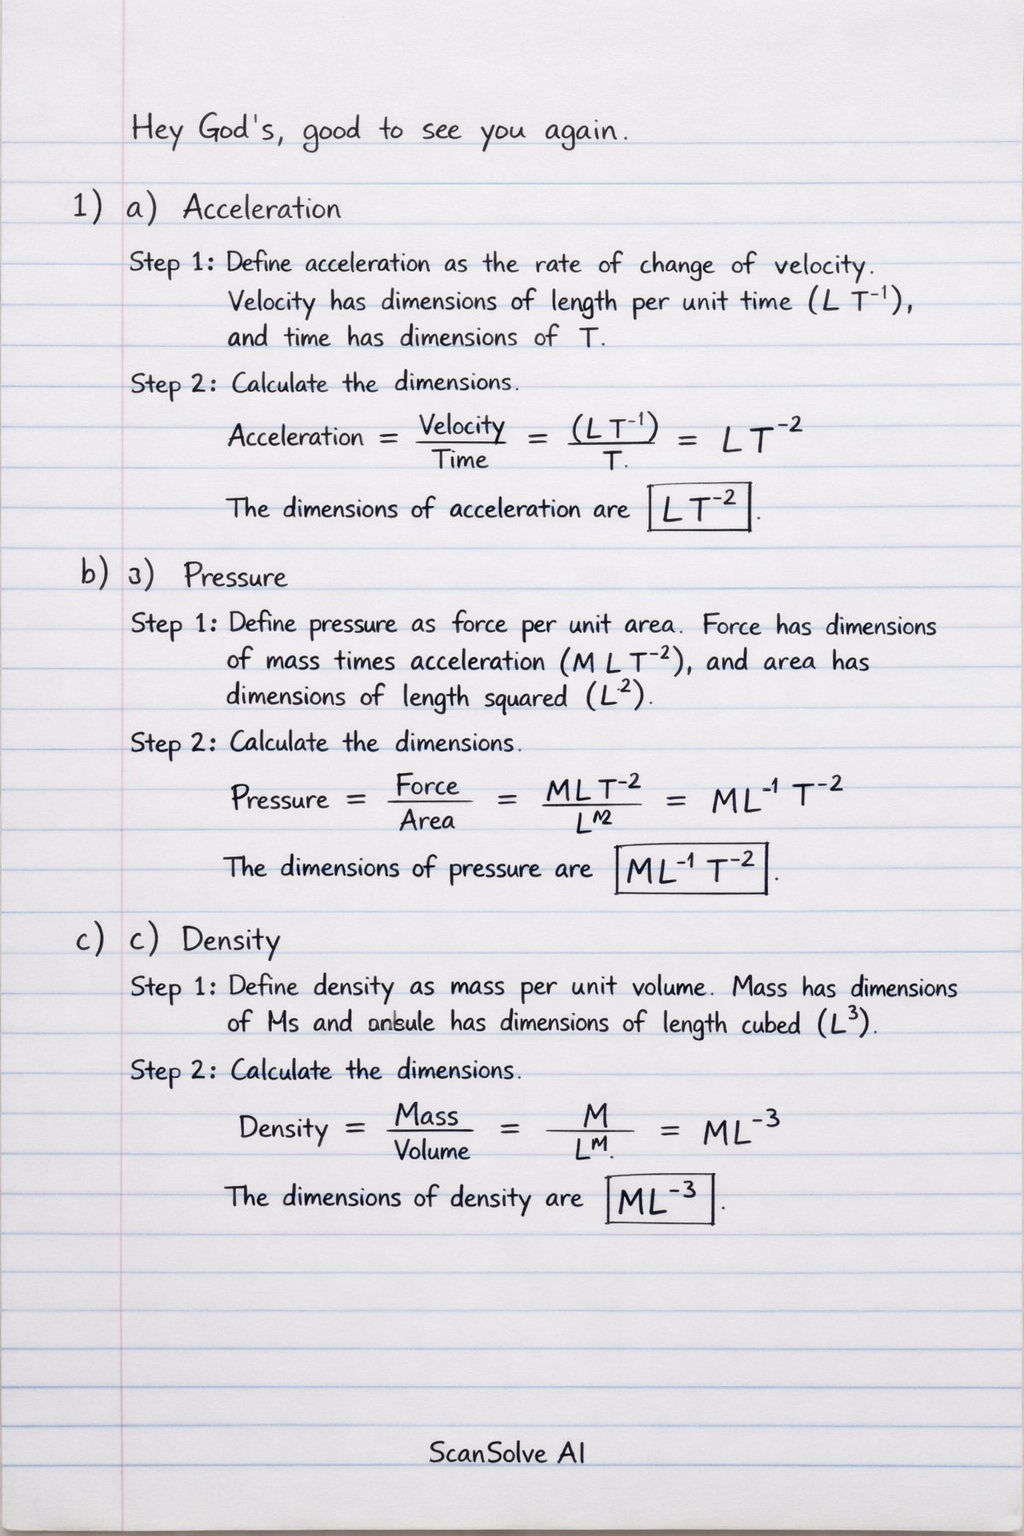 Hey God's, good to see you again.
1) a) Acceleration
Step 1: Define acceleration as the rate of change of velocity.
Velocity has dimensions of length per unit time (L T⁻¹),
and time has dimensions of T.
Step 2: Calculate the dimensions.
Acceleration = Velocity / Time = (L T⁻¹) / T. = L T⁻²
The dimensions of acceleration are L T⁻².
b) 3) Pressure
Step 1: Define pressure as force per unit area. Force has dimensions
of mass times acceleration (M L T⁻²), and area has
dimensions of length squared (L²).
Step 2: Calculate the dimensions.
Pressure = Force / Area = MLT⁻² / L = ML⁻¹ T⁻²
The dimensions of pressure are ML⁻¹ T⁻².
c) c) Density
Step 1: Define density as mass per unit volume. Mass has dimensions
of Ms and has dimensions of length cubed (L³).
Step 2: Calculate the dimensions.
Density = Mass / Volume = M / Lᴹ. = ML⁻³
The dimensions of density are ML⁻³.
ScanSolve AI